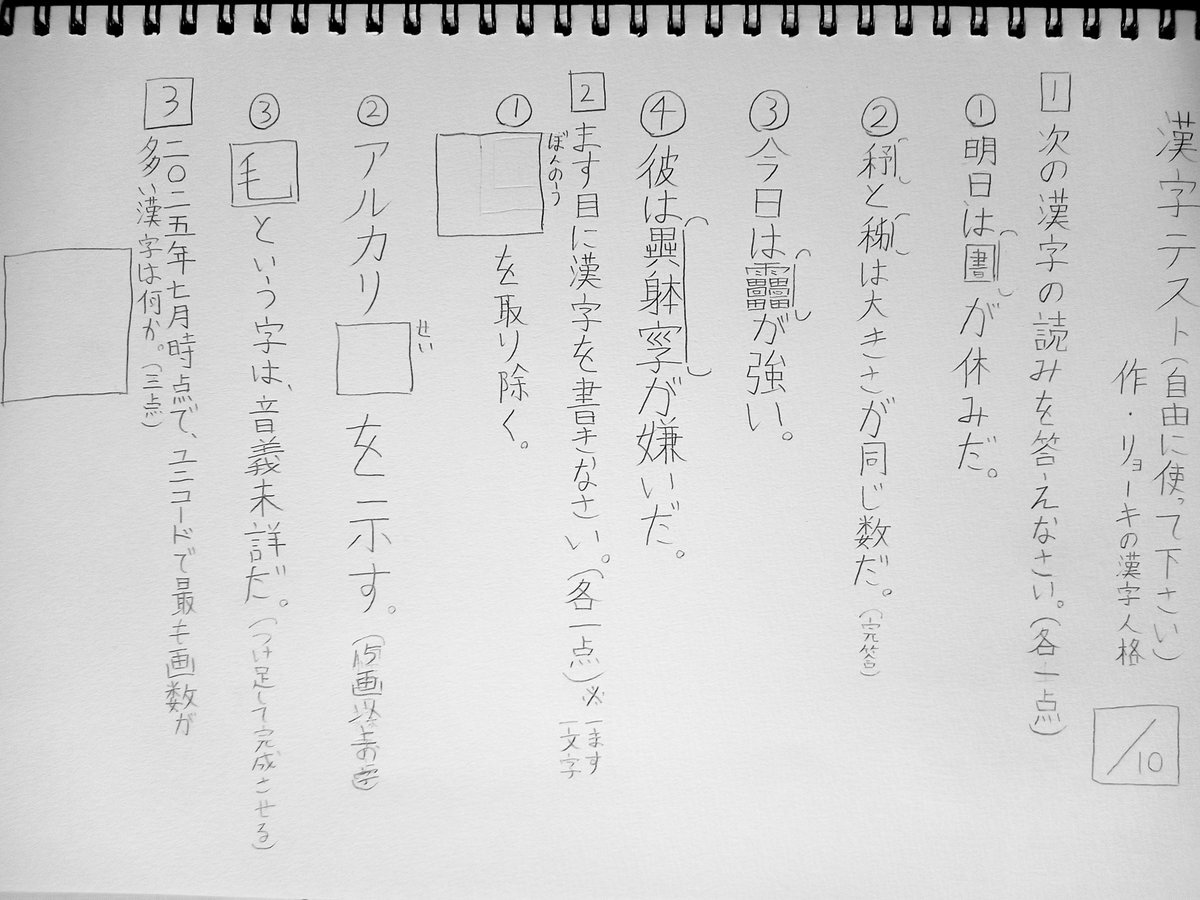 漢字テスト(自由に使って下さい)
作・リョーキの漢字人格
/10
1 次の漢字の読みを答えなさい。(各一点)
① 明日は圕が休みだ。
② 𥝱と秭は大きさが同じ数だ。(完答)
③ 今日はが強い。
④ 彼は躰が嫌いだ。
2 ます目に漢字を書きなさい。(各一点)※一ます一文字
① ぼんのう を取り除く。
② アルカリ せい を示す。(15画
③ 毛 という字は、音義未詳だ。(つけ足して完成させる)
3 二〇二五年七月時点で、ユニコードで最も画数が
多い漢字は何か。(三点)